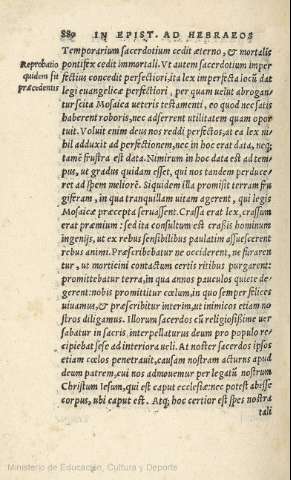 880 IN EPIST. AD HEBRAEOS
Temporarium sacerdotium cedit æterno, & mortalis
Reprobatio pontifex cedit immortali. Vt autem sacerdotium imper
quidem fit fectius concedit perfectiori, ita lex imperfecta locũ dat
præcedentis legi euangelicæ perfectiori, per quam uelut abrogan
tur scita Mosaica ueteris testamenti, eo quod nec satis
haberent roboris, nec adferrent utilitatem quam opor
tuit. Voluit enim deus nos reddi perfectos, at ea lex ni
hil adduxit ad perfectionem, nec in hoc erat data, neq;
tamẽ frustra est data. Nimirum in hoc data est ad tem
pus, ut gradus quidam esset, qui nos tandem perduce
ret ad spem meliorẽ. Siquidem illa promisit terram fru
giferam, in qua tranquillam uitam agerent, qui legis
Mosaicæ præcepta seruassent. Crassa erat lex, crassum
erat præmium: sed ita consultum est crassis hominum
ingenijs, ut ex rebus sensibilibus paulatim assuescerent
rebus animi. Præscribebatur ne occiderent, ne furaren
tur, ut morticini contactum certis ritibus purgarent:
promittebatur terra, in qua annos pauculos quiete de=
gerent: nobis promittitur cœlum, in quo semper felices
uiuamus, & præscribitur interim, ut inimicos etiam no
stros diligamus. Illorum sacerdos cũ religiosissime uer
sabatur in sacris, interpellaturus deum pro populo re
cipiebat sese ad interiora ueli. At noster sacerdos ipsos
etiam cœlos penetrauit, causam nostram acturus apud
deum patrem, cui nos admouemur per legatũ nostrum
Christum Iesum, qui est caput ecclesiæ: nec potest abesse
corpus, ubi caput est. Atq; hoc certior est spes nostra
tali
Ministerio de Educación, Cultura y Deporte